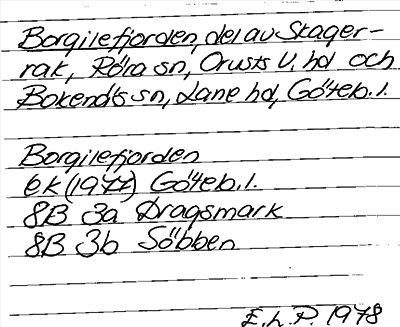 Borgilefjorden, del av Skager-
rak, Röra sn, Orusts V. hd och
Bokenäs sn, Lane hd, Göteb. l.
Borgilefjorden
ek (1977) Göteb. l.
8B 3a Dragsmark
8B 3b Söbben
E. L. P. 1978